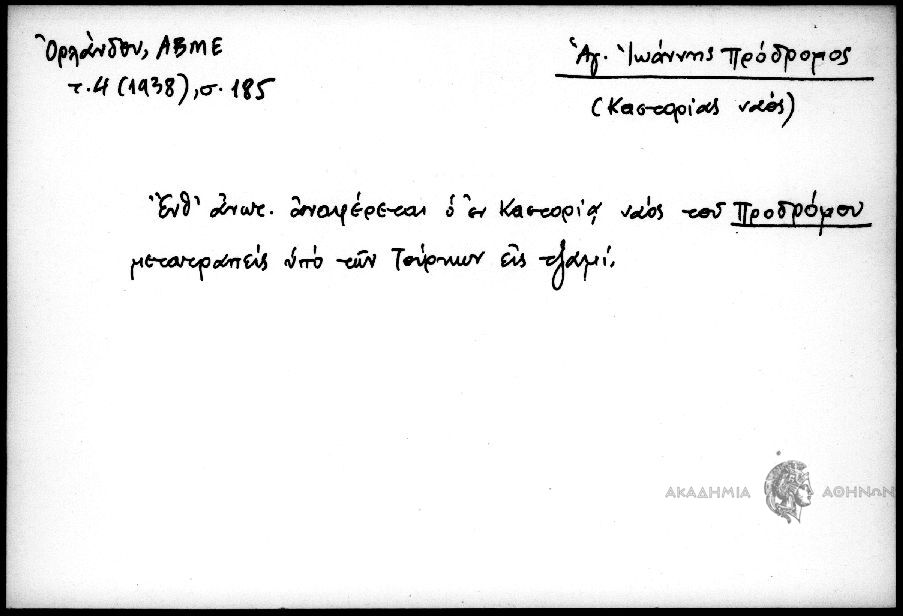 Ὀρλάνδου, ΑΒΜΕ
τ. 4 (1938), σ. 185
Ἁγ. Ἰωάννης Πρόδρομος
(Καστορίας ναός)
Ἔνθ' ἄνωτ. ἀναφέρεται ὁ ἐν Καστορίᾳ ναός τοῦ Προδρόμου
μετατραπείς ὑπό τῶν Τούρκων εἰς τζαμί.
ΑΚΑΔΗΜΙΑ ΑΘΗΝΩΝ